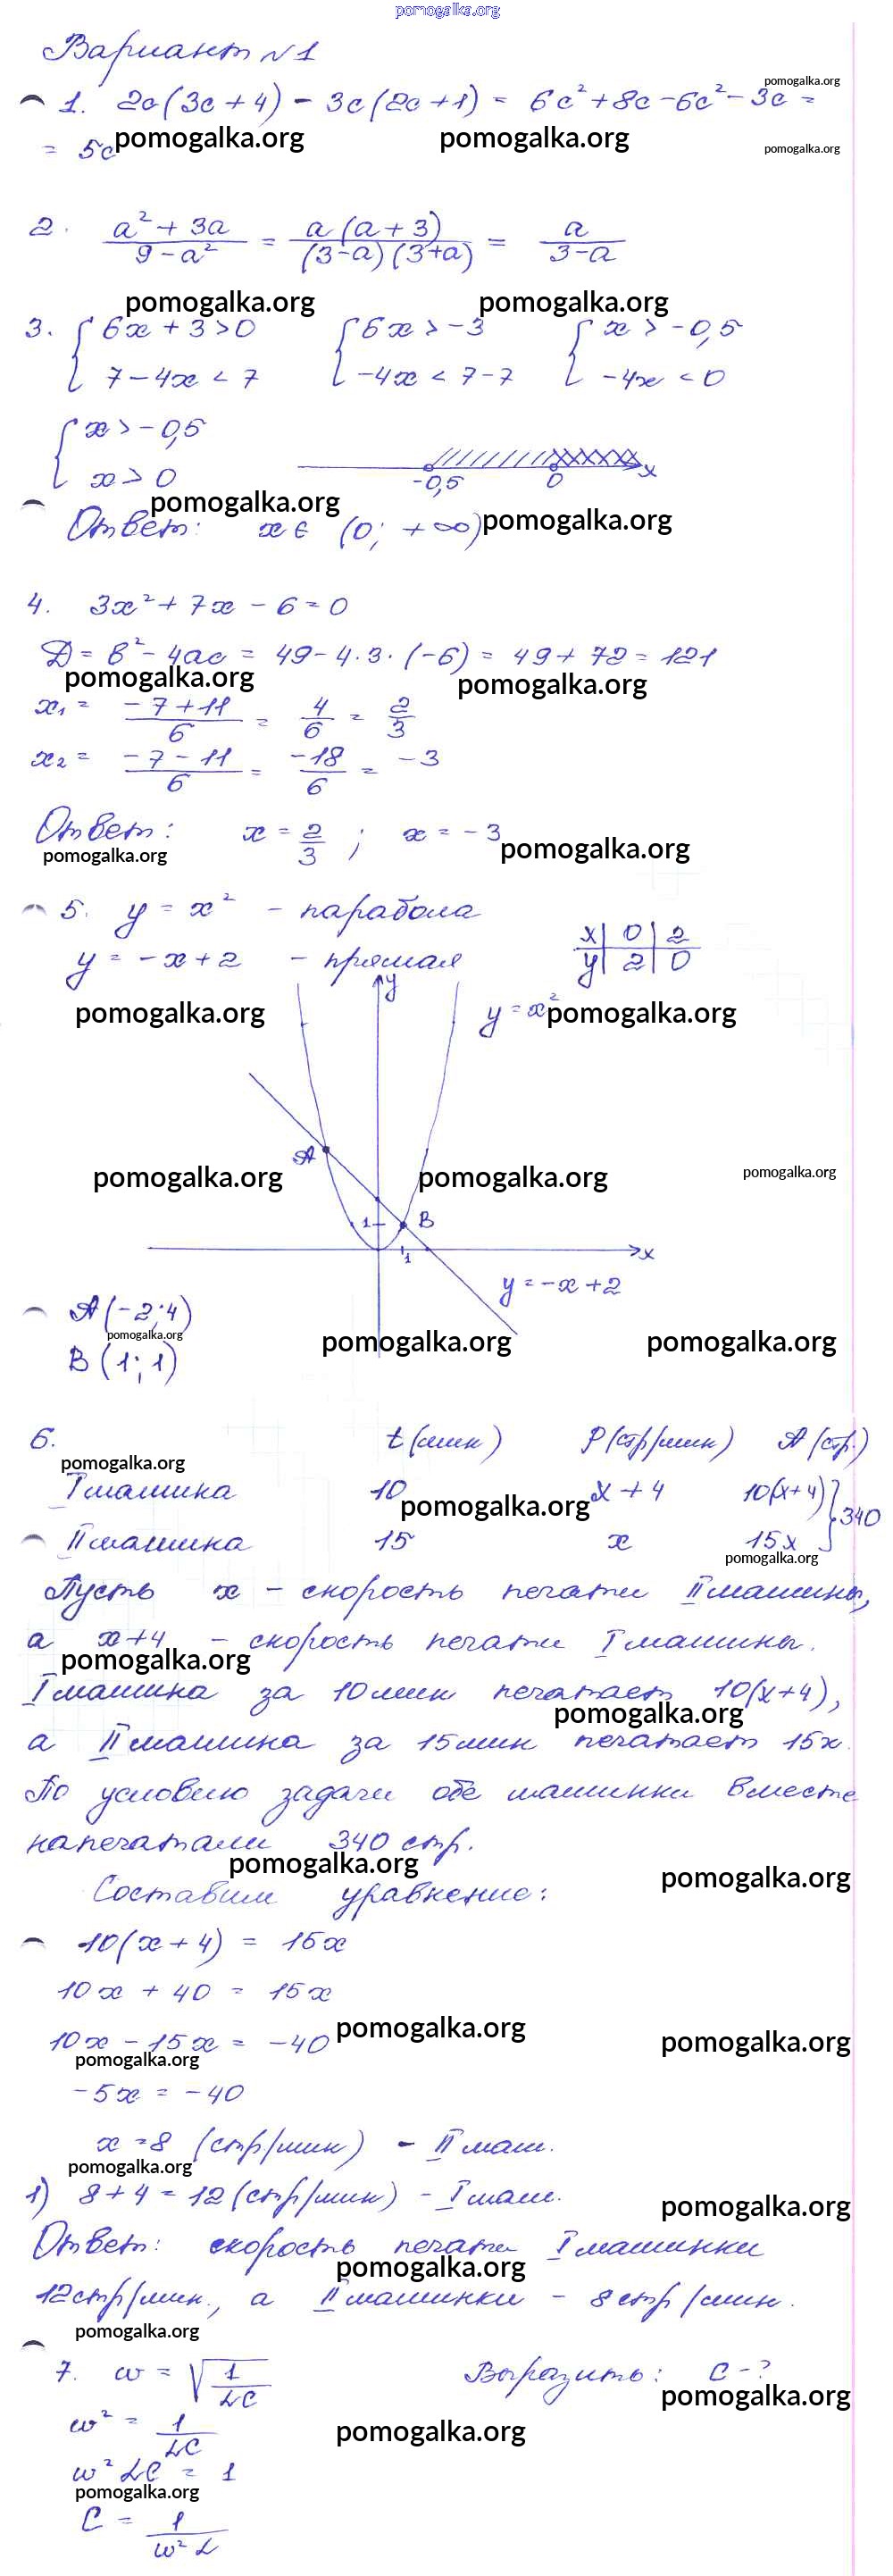 pomogalka.org
Вариант №1
pomogalka.org
1. 2c(3c+4) - 3c(2c+1) = 6c²+8c-6c²-3c =
pomogalka.org pomogalka.org
= 5c
pomogalka.org
2. (a²+3a)/(9-a²) = a(a+3)/((3-a)(3+a)) = a/(3-a)
pomogalka.org pomogalka.org
3. { 6x+3>0 { 6x>-3 { x>-0,5
7-4x<7 -4x<7-7 -4x<0
{ x>-0,5
x>0
-0,5 0 x
pomogalka.org pomogalka.org
Ответ: x∈(0; +∞)
4. 3x²+7x-6=0
D=b²-4ac = 49-4·3·(-6) = 49+72=121
pomogalka.org pomogalka.org
x₁= (-7+11)/6 = 4/6 = 2/3
x₂= (-7-11)/6 = -18/6 = -3
Ответ: x=2/3 ; x=-3
pomogalka.org pomogalka.org
5. y=x² - парабола
y=-x+2 - прямая
x | 0 | 2
y | 2 | 0
y
pomogalka.org y=x² pomogalka.org
A
pomogalka.org pomogalka.org pomogalka.org
1 B
1 x
y=-x+2
A(-2;4)
pomogalka.org pomogalka.org pomogalka.org
B(1;1)
6. t(мин) P(стр/мин) A(стр.)
pomogalka.org
I машина 10 x+4 10(x+4) } 340
pomogalka.org
II машина 15 x 15x
pomogalka.org
Пусть x - скорость печати II машины,
а x+4 - скорость печати I машины.
pomogalka.org
I машина за 10 мин печатает 10(x+4),
pomogalka.org
а II машина за 15 мин печатает 15x.
По условию задачи обе машинки вместе
напечатали 340 стр.
pomogalka.org pomogalka.org
Составим уравнение:
10(x+4) = 15x
10x+40 = 15x
pomogalka.org pomogalka.org
10x-15x = -40
pomogalka.org
-5x = -40
x=8 (стр/мин) - II маш.
pomogalka.org
1) 8+4=12(стр/мин) - I маш.
pomogalka.org
Ответ: скорость печати I машинки
pomogalka.org
12стр/мин., а II машинки - 8стр/мин.
pomogalka.org
7. ω = √(1/LC) Выразить: C-?
pomogalka.org
ω² = 1/LC
pomogalka.org
ω²LC = 1
pomogalka.org
C = 1/(ω²L)